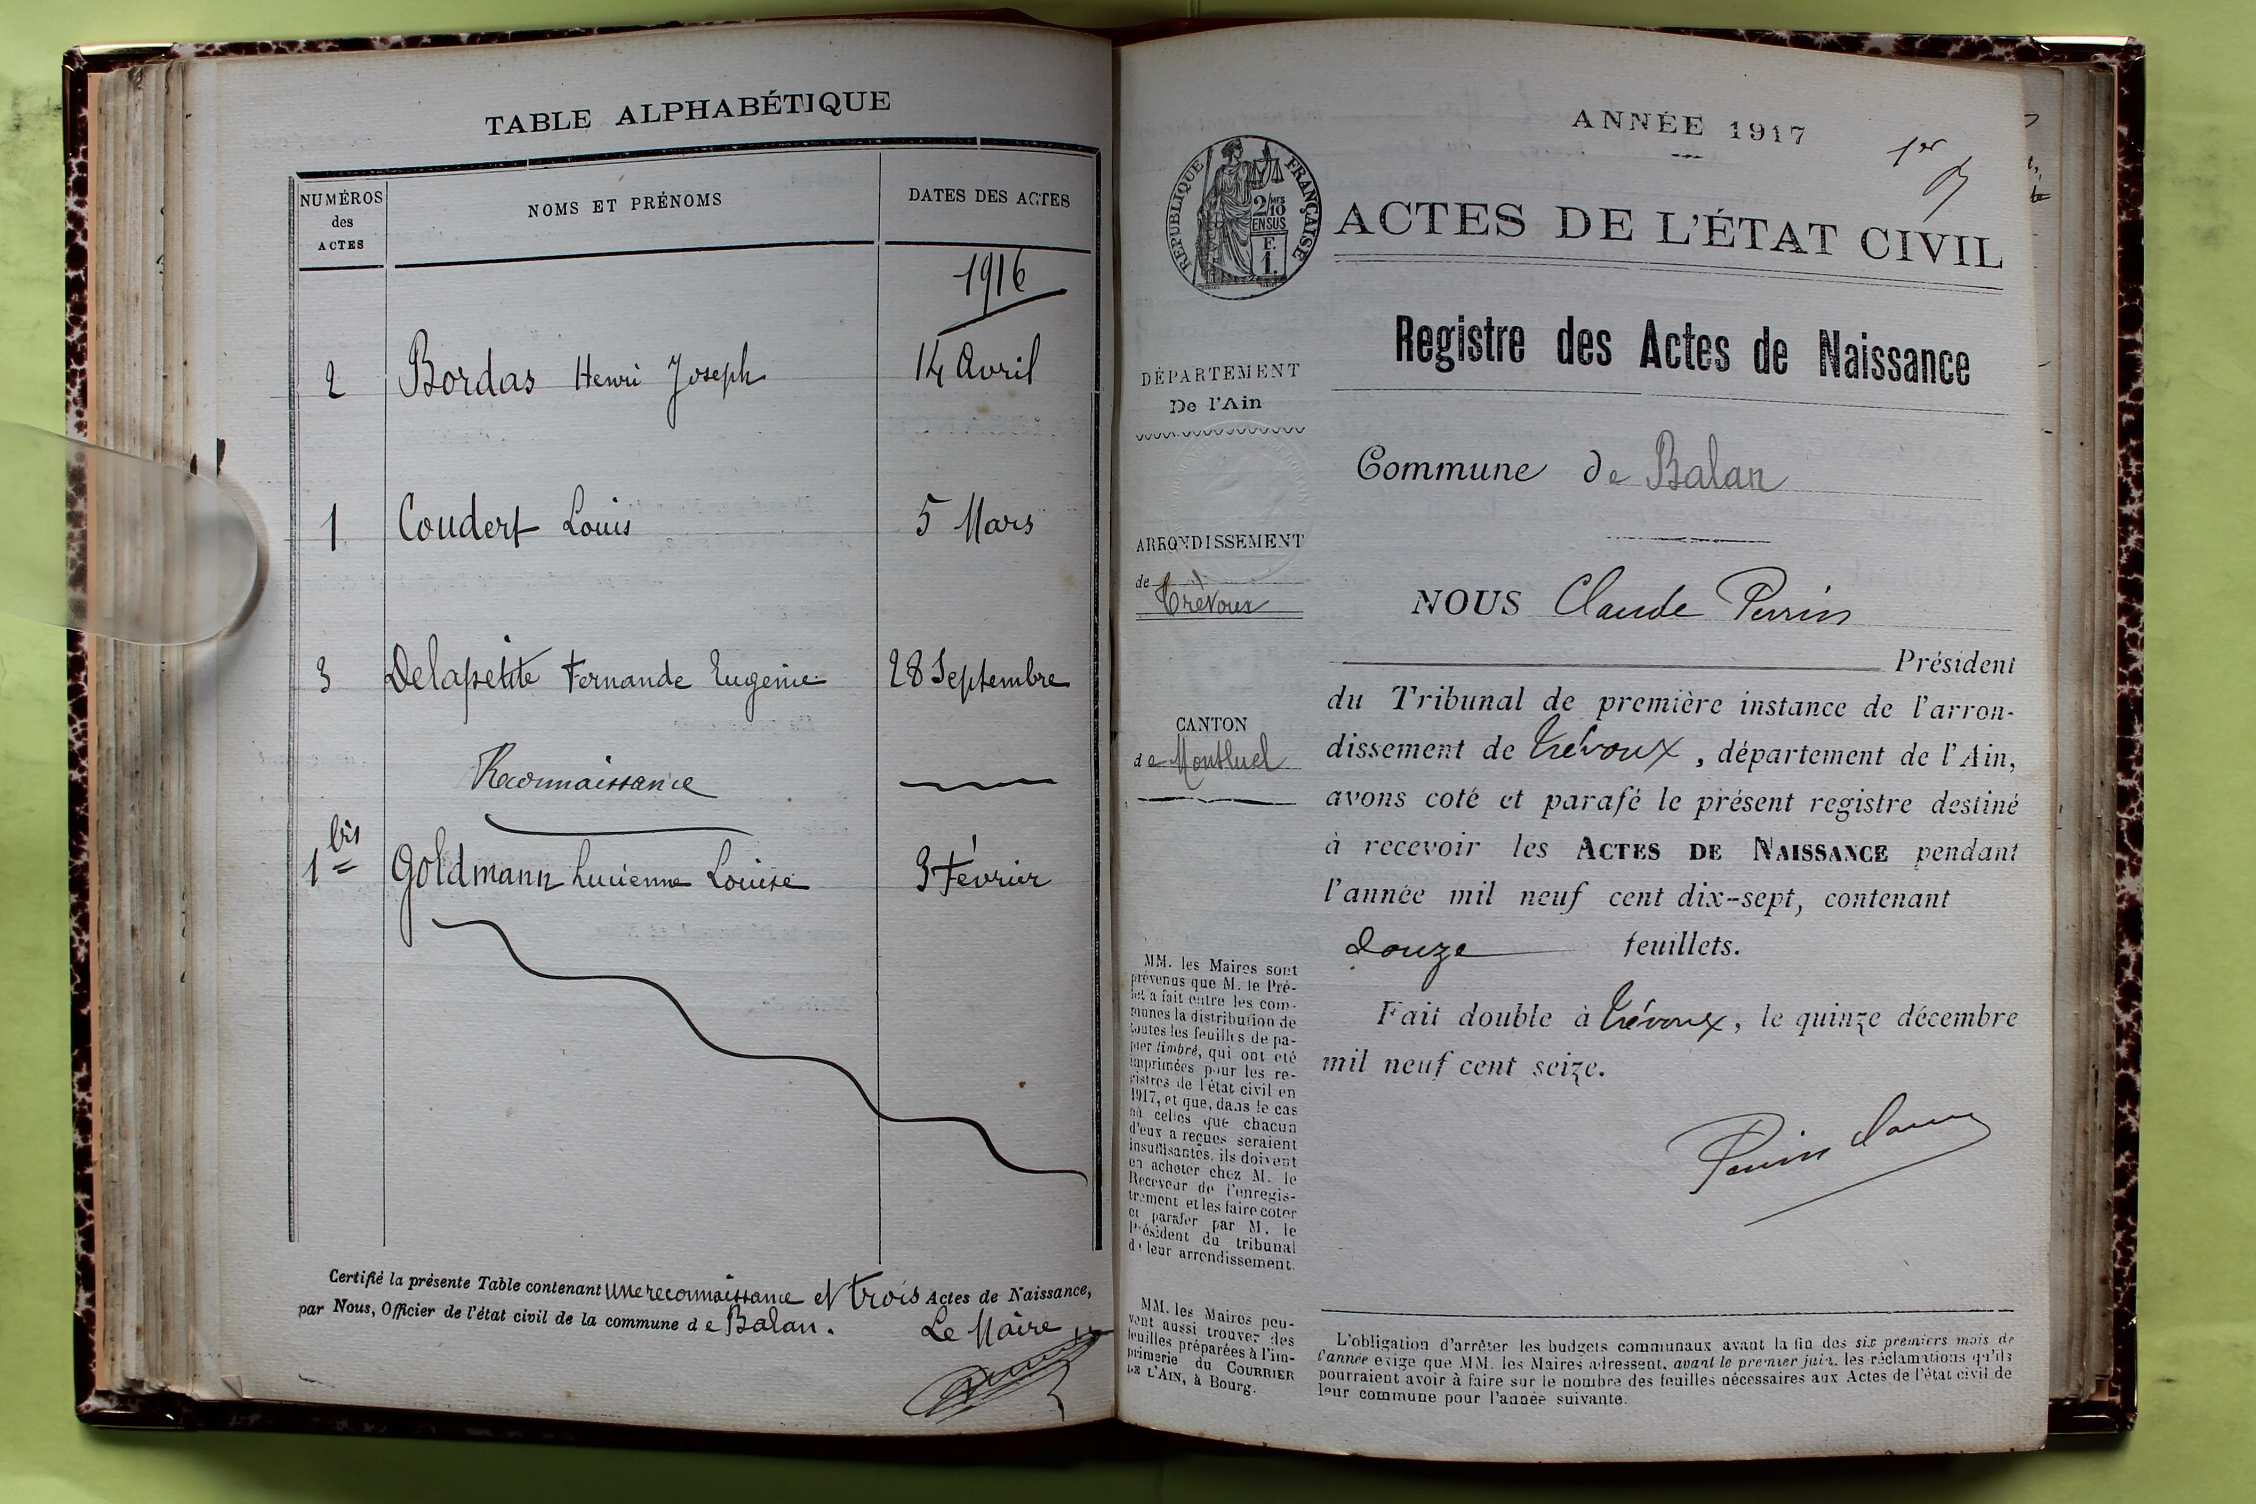 TABLE ALPHABÉTIQUE
NUMÉROS
des
ACTES
NOMS ET PRÉNOMS
DATES DES ACTES
1916
2 Bordas Henri Joseph 14 Avril
1 Coudert Louis 5 Mars
3 Delapetite Fernande Eugénie 28 Septembre
Reconnaissance
1 bis Goldmann Lucienne Louise 3 Février
Certifié la présente Table contenant une reconnaissance et trois Actes de Naissance,
par Nous, Officier de l'état civil de la commune de Balan.
Le Maire
ANNÉE 1917
1er
RÉPUBLIQUE FRANÇAISE
2/10
EN SUS
F.
1.
ACTES DE L'ÉTAT CIVIL
Registre des Actes de Naissance
DÉPARTEMENT
De l'Ain
ARRONDISSEMENT
de Trévoux
CANTON
de Montluel
MM. les Maires sont
prévenus que M. le Pré-
fet a fait entre les com-
munes la distribution de
toutes les feuilles de pa-
pier timbré, qui ont été
imprimées pour les re-
gistres de l'état civil en
1917, et que, dans le cas
où celles que chacun
d'eux a reçues seraient
insuffisantes, ils doivent
en acheter chez M. le
Receveur de l'enregis-
trement et les faire coter
et parafer par M. le
Président du tribunal
de leur arrondissement.
MM. les Maires peu-
vent aussi trouver des
feuilles préparées à l'im-
primerie du COURRIER
DE L'AIN, à Bourg.
Commune de Balan
NOUS Claude Perrin
Président
du Tribunal de première instance de l'arron-
dissement de Trévoux, département de l'Ain,
avons coté et parafé le présent registre destiné
à recevoir les ACTES DE NAISSANCE pendant
l'année mil neuf cent dix-sept, contenant
douze feuillets.
Fait double à Trévoux, le quinze décembre
mil neuf cent seize.
Perrin Claude
L'obligation d'arrêter les budgets communaux avant la fin des six premiers mois de
l'année exige que MM. les Maires adressent, avant le premier juin, les réclamations qu'ils
pourraient avoir à faire sur le nombre des feuilles nécessaires aux Actes de l'état civil de
leur commune pour l'année suivante.